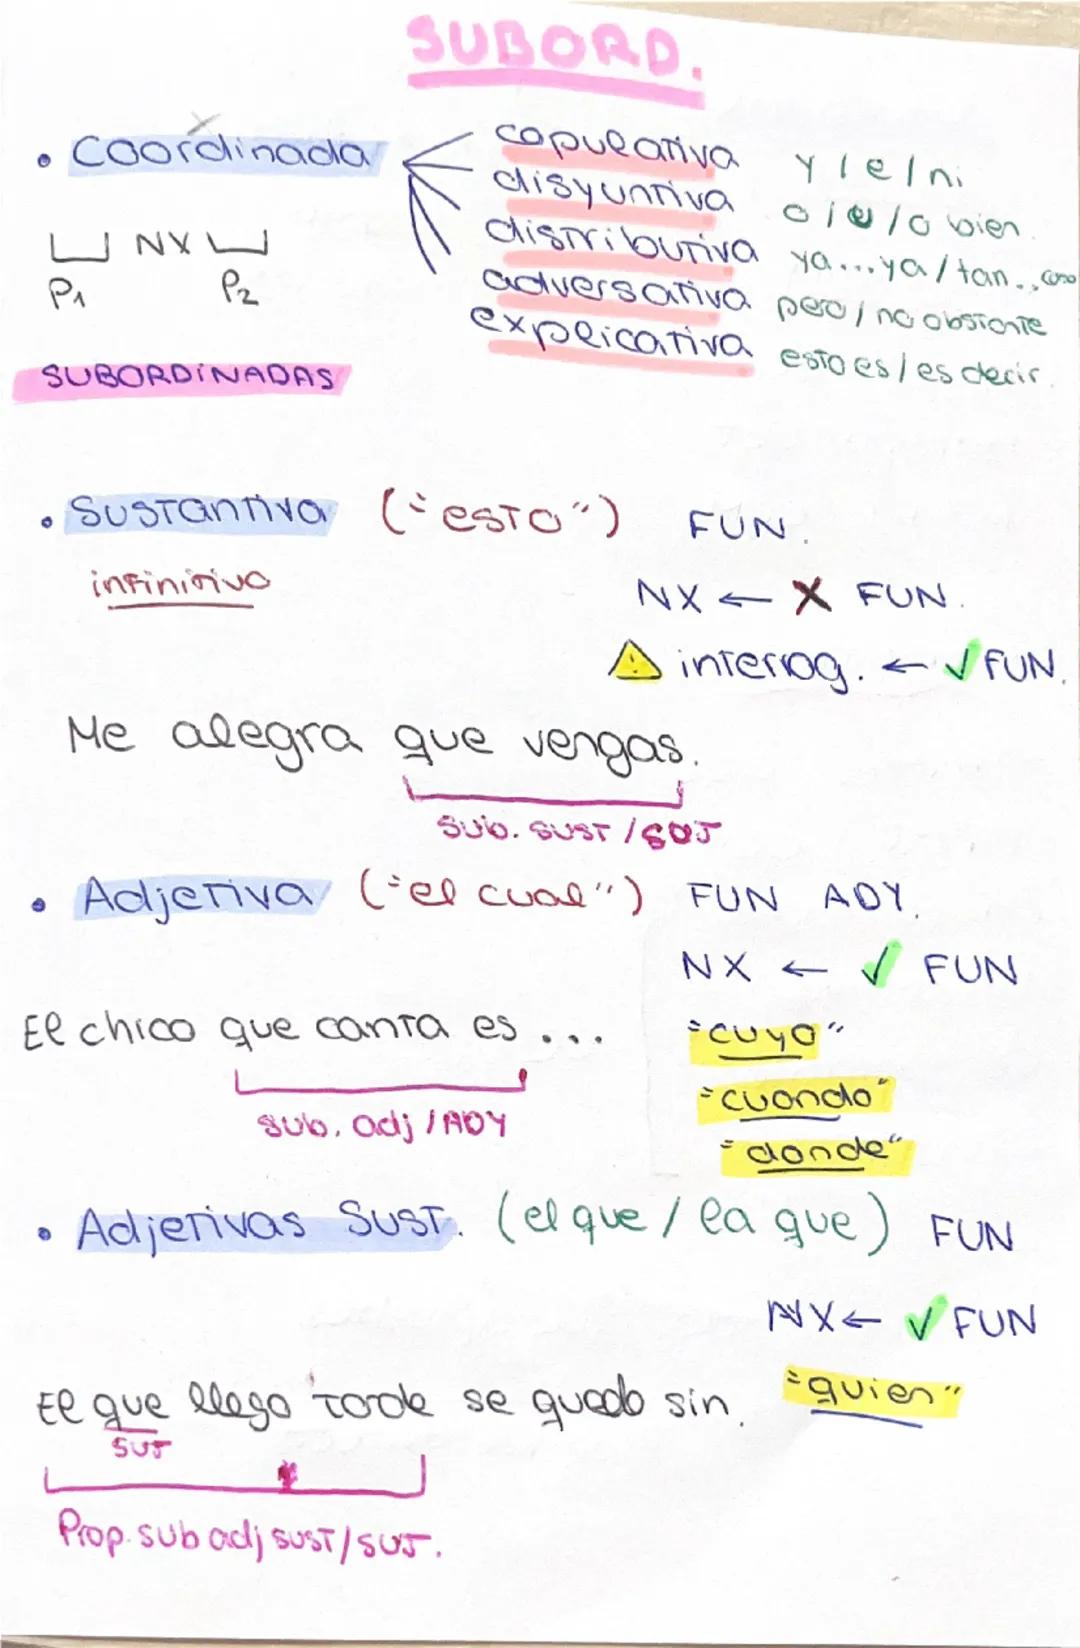 SUBORD.
• Coordinada
copulativa y/e/ni
disyuntiva o/u/o bien
distributiva ya...ya/tan...como
adversativa pero/no obstante
explicativa esto es/es decir.
NX
P1 P2
SUBORDINADAS
• Sustantiva ("esto") FUN.
infinitivo
NX ← X FUN.
⚠ interrog. ← ✓ FUN.
Me alegra que vengas.
Sub. SUST / SUJ
• Adjetiva ("el cual") FUN ADY.
NX ← ✓ FUN
El chico que canta es ...
"cuyo"
"cuando"
sub. adj / ADY
"donde"
• Adjetivas SUST. (el que / la que) FUN
NX ← ✓ FUN
"quien"
El que llego tarde se quedo sin.
SUJ
Prop. sub adj SUST/SUJ.